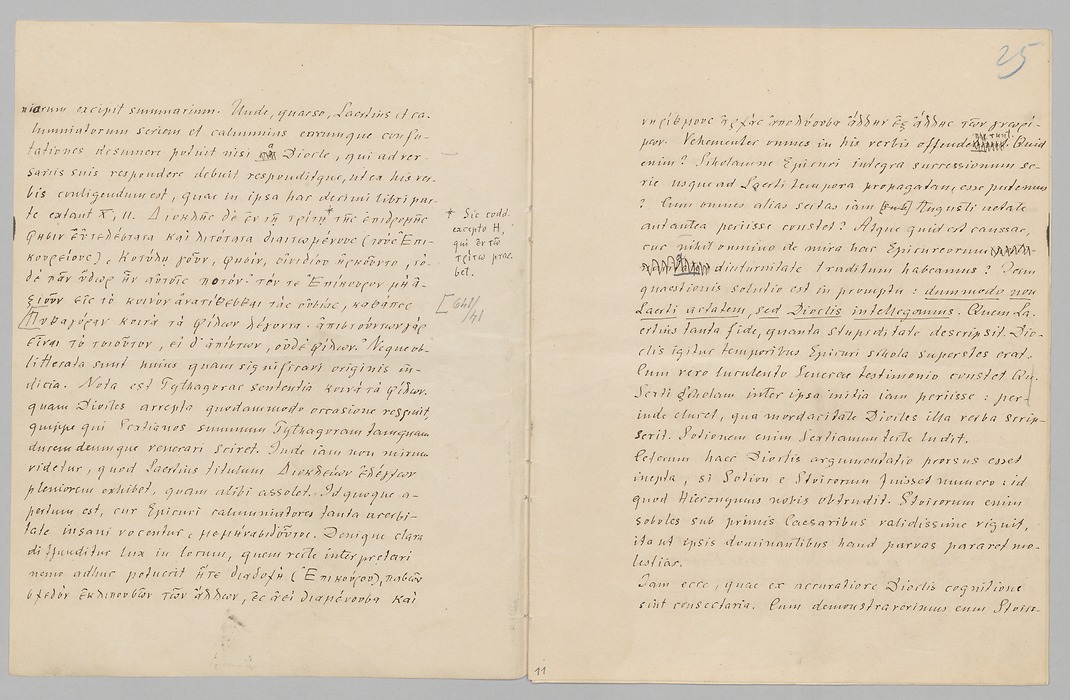 niarum excipit summarium. Unde, quaeso, Laertius et ca-
lumniatorum seriem et calumnias earumque confu-
tationes desumere potuit nisi a Diocle, qui adver-
sariis suis respondere debuit responditque, ut ea his ver-
bis colligendum est, quae in ipsa hac decimi libri par-
te extant X, 11. Διοκλῆς δὲ ἐν τῇ τρίτῃ* τῆς ἐπιδρομῆς
φησιν εὐτελέστατα καὶ λιτότατα διαιτωμένους (τοὺς Ἐπι-
κουρείους). Κοτύλῃ γοῦν, φησίν, οἰνιδίου ἠρκοῦντο, τὸ
δὲ πᾶν ὕδωρ ἦν αὐτοῖς ποτόν· τόν τε Ἐπίκουρον μὴ ἀ-
ξιοῦν εἰς τὸ κοινὸν ἀνατίθεσθαι τὰς οὐσίας, καθάπερ
Πυθαγόραν κοινὰ τὰ φίλων λέγοντα· ἀπιστούντων γὰρ
εἶναι τὸ τοιοῦτον, εἰ δ' ἀπίστων, οὐδὲ φίλων. Neque ob-
litterata sunt huius quam significavi originis in-
dicia. Nota est Pythagorae sententia κοινὰ τὰ φίλων.
quam Diocles arrepta quodammodo occasione respuit,
quippe qui Sextianos summum Pythagoram tamquam
ducem deumque venerari sciret. Inde iam non mirum
videtur, quod Laertius titulum Διοκλέων ἐλέγχων
pleniorem exhibet, quam alibi assolet. Id quoque a-
pertum est, cur Epicuri calumniatores tanta acerbi-
tate insani vocentur, μεμήνασι δ' οὗτοι. Denique clara
diffunditur lux in locum, quem recte interpretari
nemo adhuc potuerit ἥ τε διαδοχὴ (Ἐπικούρου), πασῶν
σχεδὸν ἐκλιπουσῶν τῶν ἄλλων, ἐς ἀεὶ διαμένουσα καὶ
* Sic codd.
excepto H,
qui ἐν τῷ
τρίτῳ prae-
bet.
11
25
νηρίθμους ἀρχὰς ἀπολύουσα ἄλλην ἐξ ἄλλης τῶν γνωρί-
μων. Vehementer omnes in his verbis offenderunt. Quid
enim? Scholamne Epicuri integra successionum se-
rie usque ad Laerti tempora propagatam esse putemus
? Cum omnes alias sectas iam Augusti aetate
aut antea periisse constet? Atque quid est caussae,
cur nihil omnino de mira hac Epicureorum
diuturnitate traditum habeamus? Iam
quaestionis solutio est in promptu: dummodo non
Laerti aetatem, sed Dioclis intellegamus. Quem La-
ertius tanta fide, quanta stupiditate descripsit. Dio-
clis igitur temporibus Epicuri schola superstes erat.
Cum vero luculento Senecae testimonio constet Qu.
Sexti scholam inter ipsa initia iam periisse: per-
inde elucet, qua mordacitate Diocles illa verba scrip-
serit. Sotionem enim Sextianum recte ludit.
Ceterum haec Dioclis argumentatio prorsus esset
inepta, si Sotion e Stoicorum fuisset numero: id
quod Hieronymus nobis obtrudit. Stoicorum enim
soboles sub primis Caesaribus validissime viguit,
ita ut ipsis dominantibus haud parvas pararet mo-
lestias.
Iam ecce, quae ex accuratiore Dioclis cognitione
sint consectaria. Cum demonstraverimus eum Stoico-